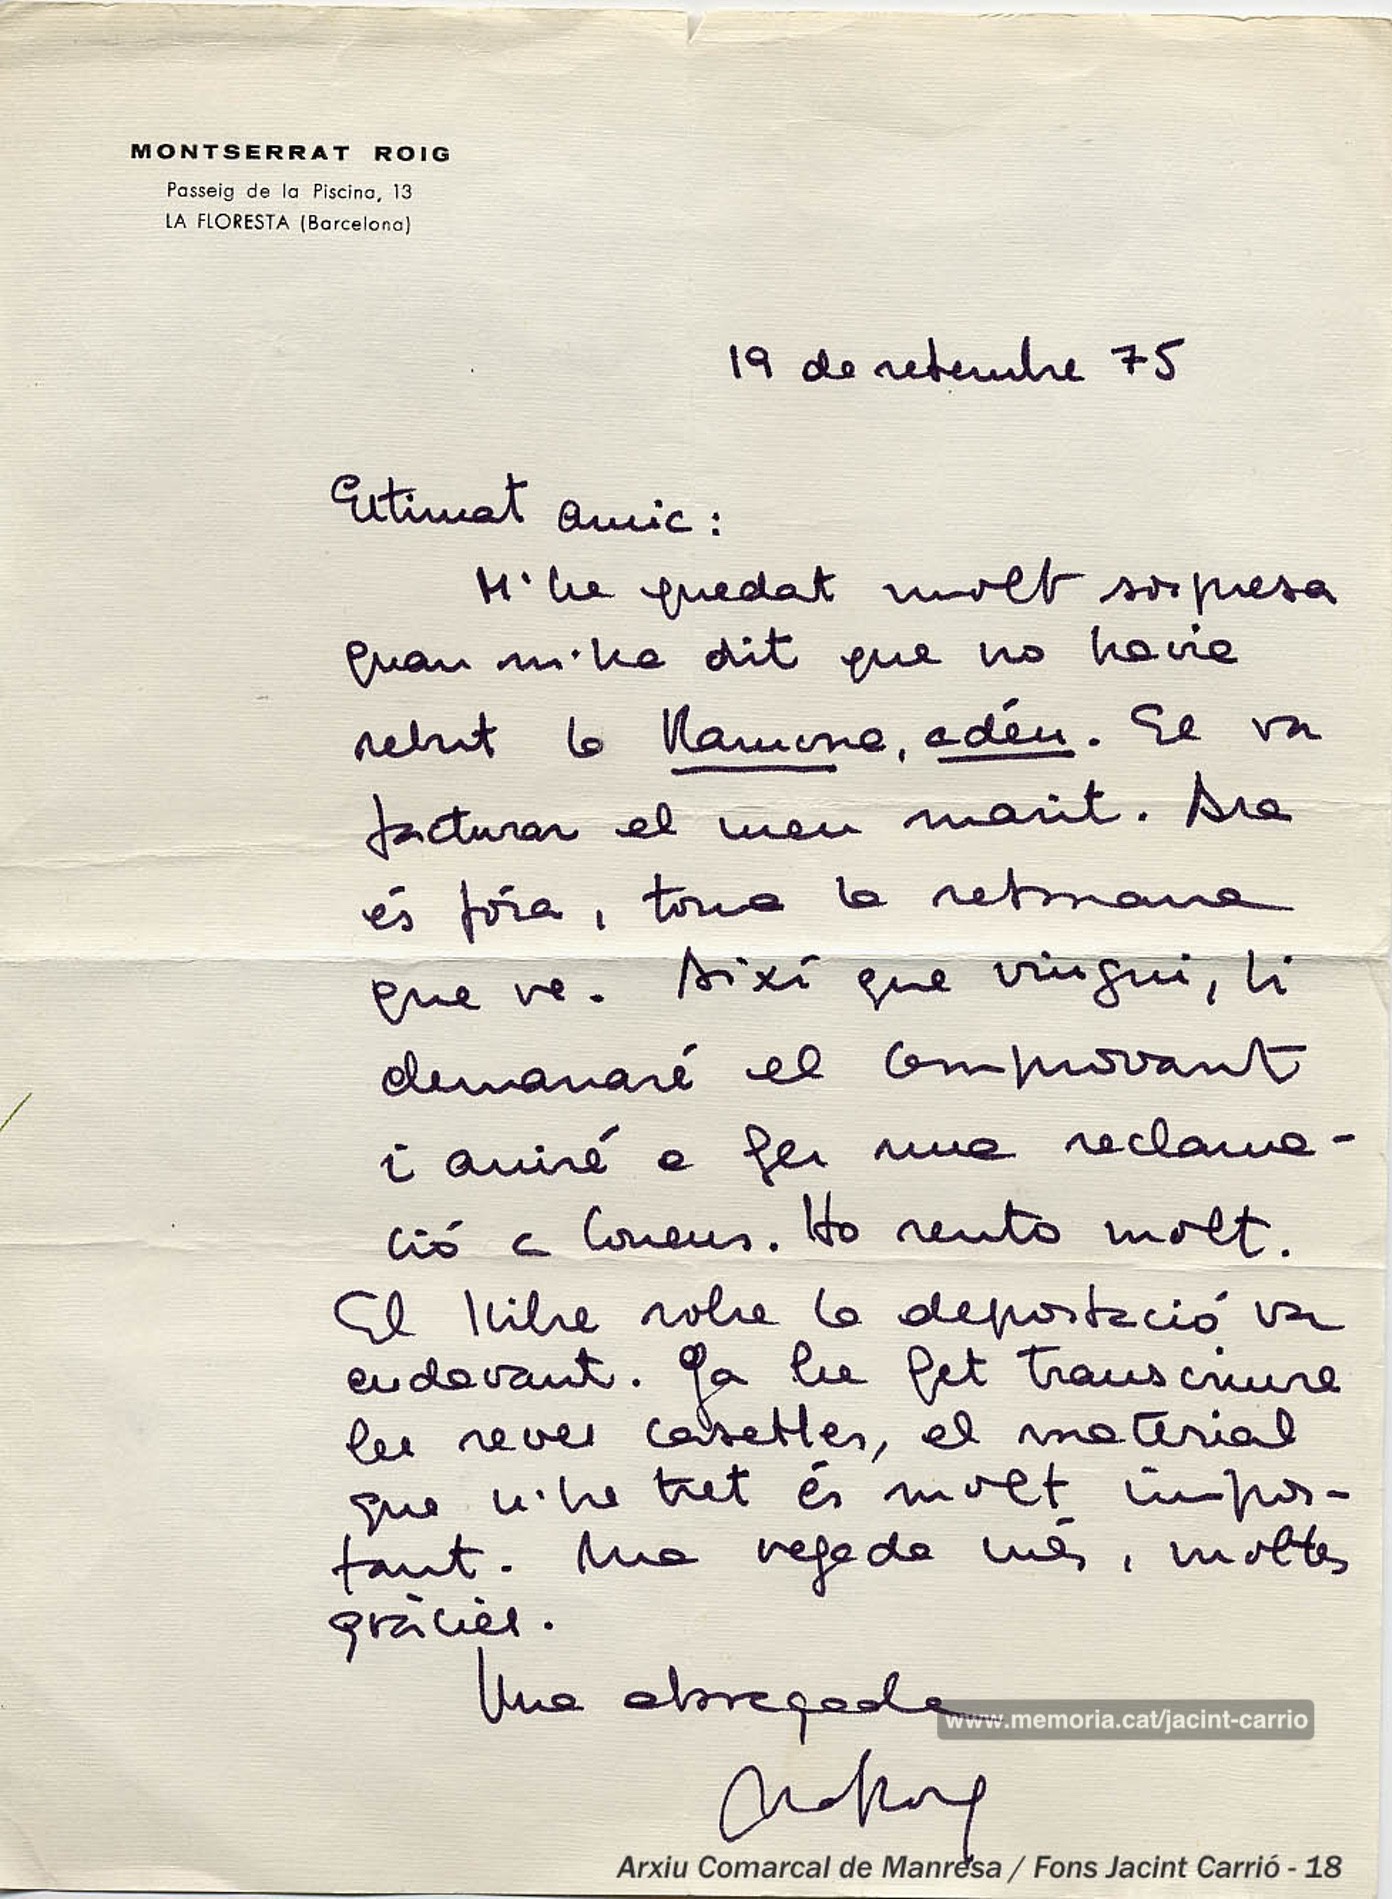 MONTSERRAT ROIG
Passeig de la Piscina, 13
LA FLORESTA (Barcelona)
19 de setembre 75
Estimat amic:
M'he quedat molt sorpresa
quan m'ha dit que no havia
rebut la Ramona, adéu. El va
facturar el meu marit. Ara
és fóra, torna la setmana
que ve. Així que vingui, li
demanaré el comprovant
i aniré a fer una reclama-
ció a Correus. Ho sento molt.
El llibre sobre la deportació va
endavant. Ja he fet transcriure
les seves casettes, el material
que n'he tret és molt impor-
tant. Una vegada més, moltes
gràcies.
Una abraçada
www.memoria.cat/jacint-carrio
M Roig
Arxiu Comarcal de Manresa / Fons Jacint Carrió - 18